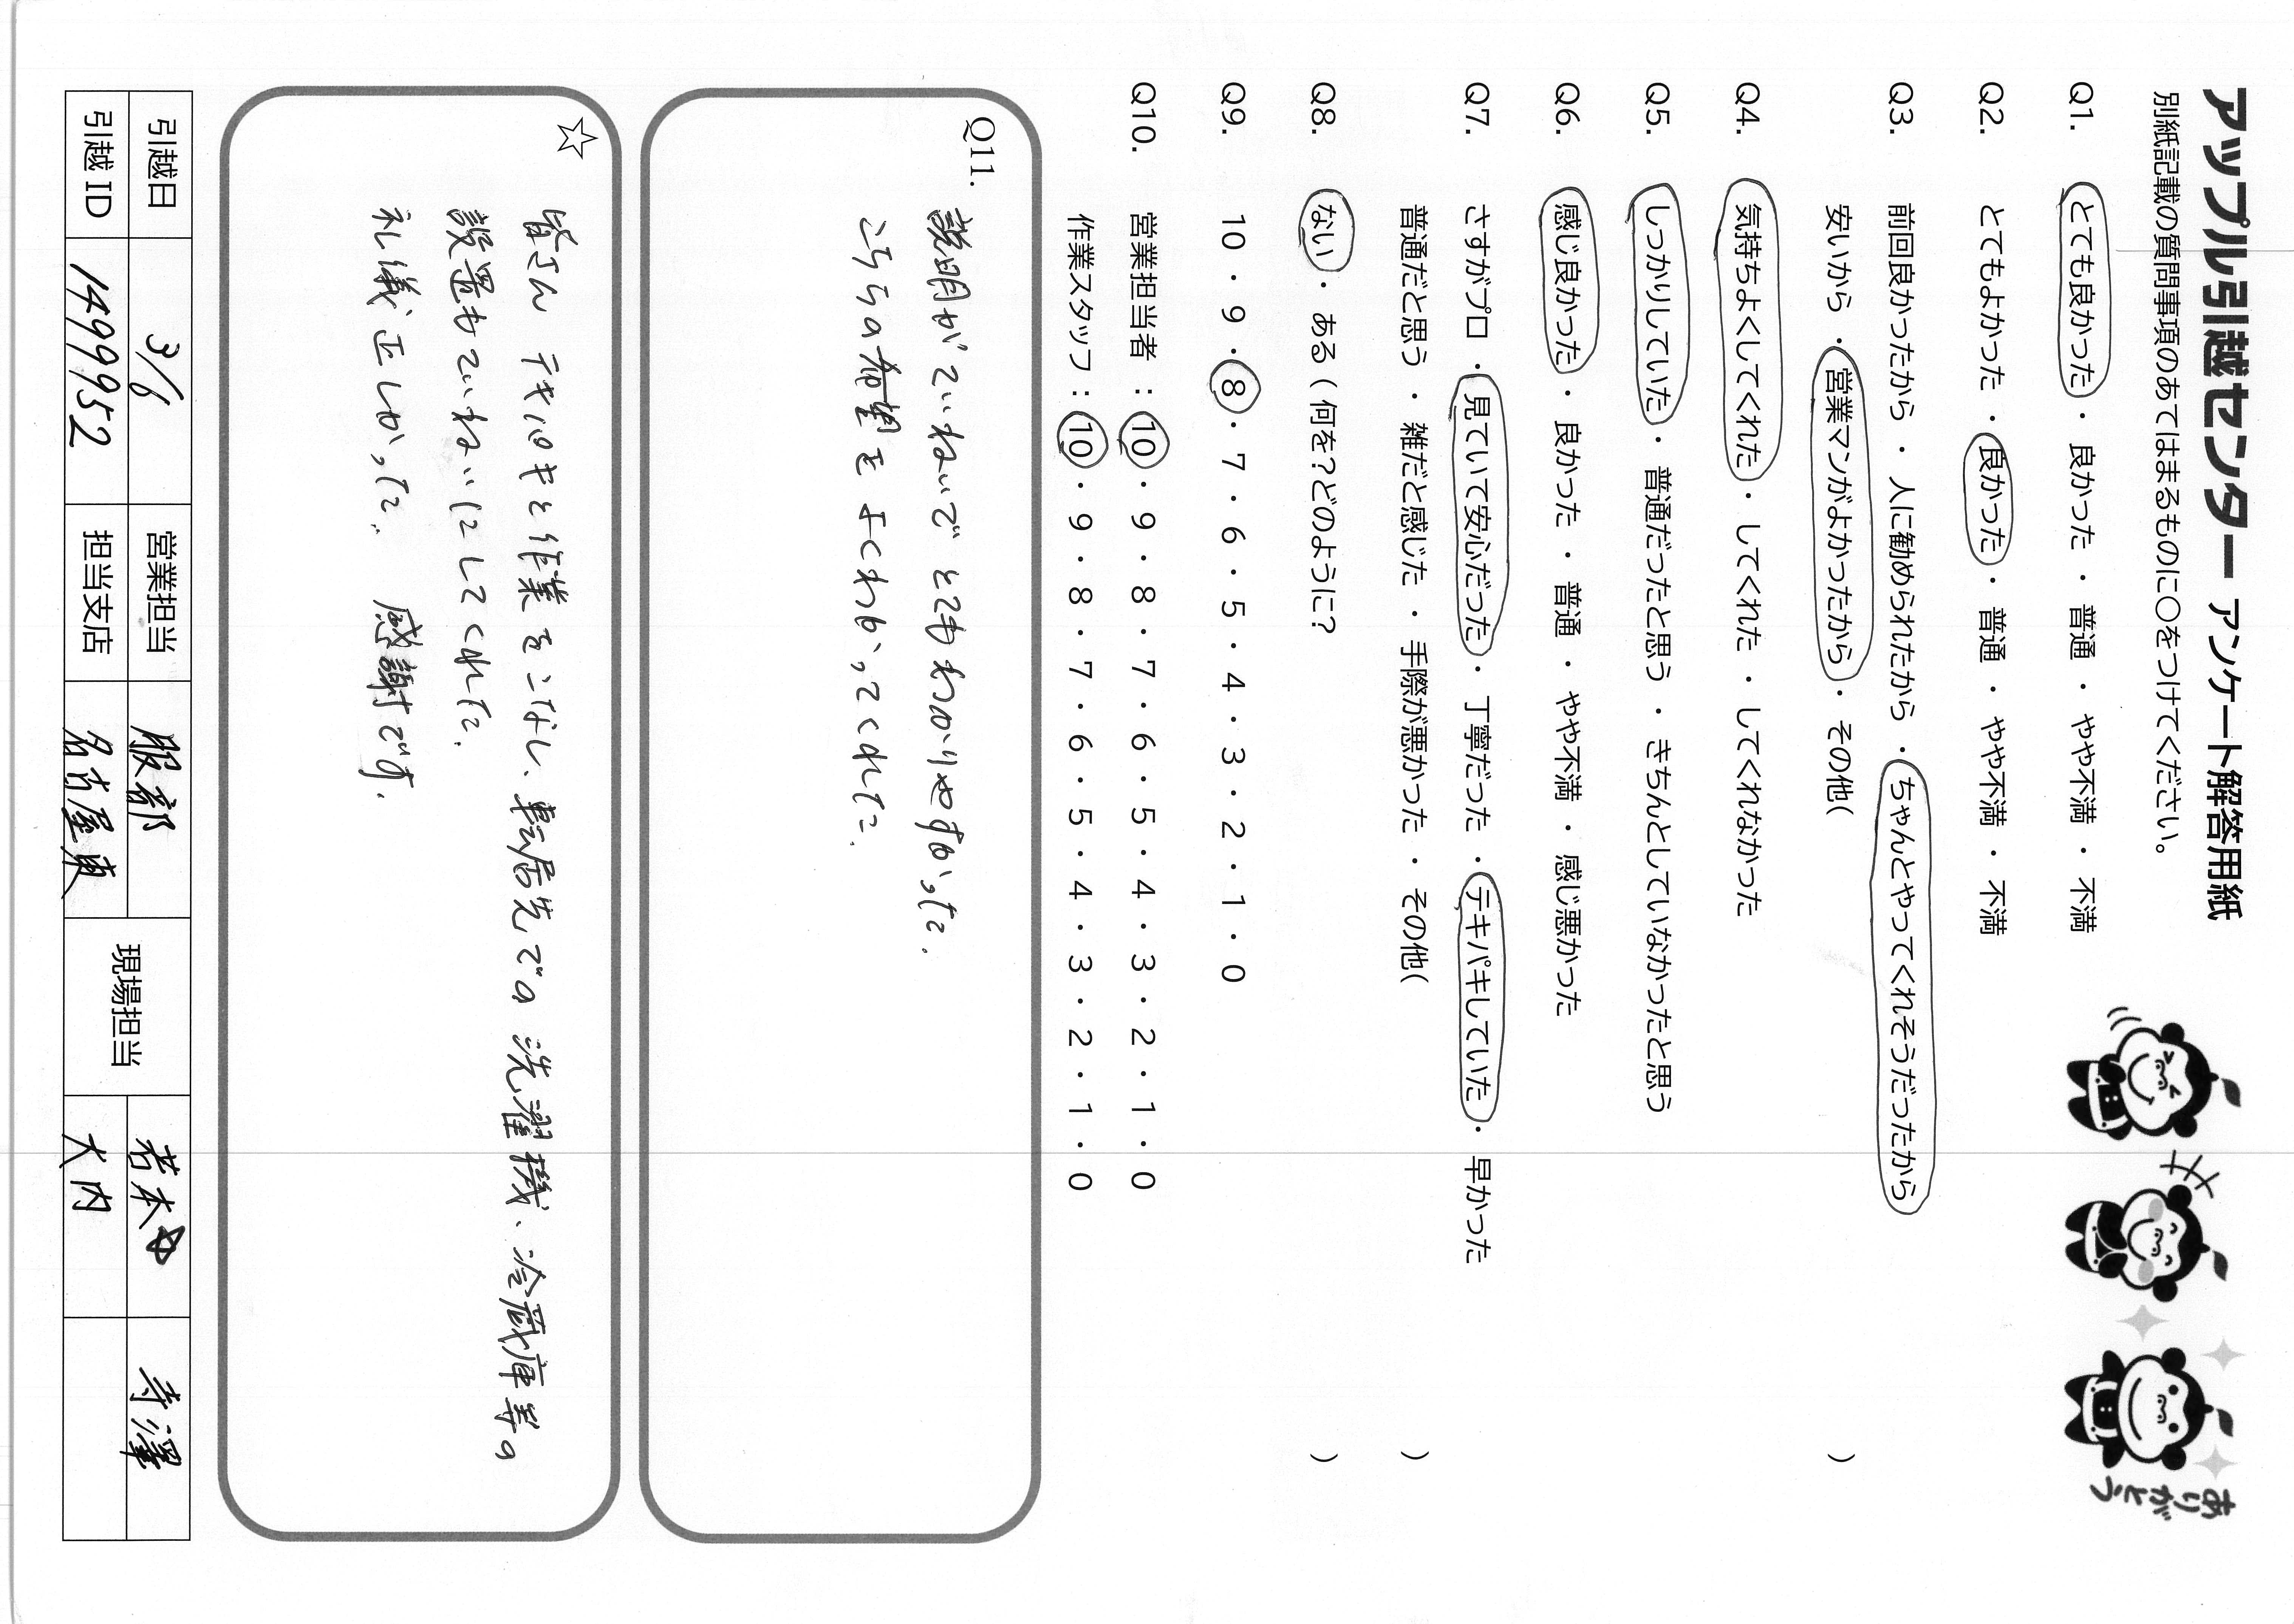 アップル引越センター アンケート解答用紙
別紙記載の質問事項のあてはまるものに○をつけてください。
ありがとう
Q1. とても良かった ・ 良かった ・ 普通 ・ やや不満 ・ 不満
Q2. とてもよかった ・ 良かった ・ 普通 ・ やや不満 ・ 不満
Q3. 前回良かったから ・ 人に勧められたから ・ ちゃんとやってくれそうだったから
安いから ・ 営業マンがよかったから ・ その他( )
Q4. 気持ちよくしてくれた ・ してくれた ・ してくれなかった
Q5. しっかりしていた ・ 普通だったと思う ・ きちんとしていなかったと思う
Q6. 感じ良かった ・ 良かった ・ 普通 ・ やや不満 ・ 感じ悪かった
Q7. さすがプロ ・ 見ていて安心だった ・ 丁寧だった ・ テキパキしていた ・ 早かった
普通だと思う ・ 雑だと感じた ・ 手際が悪かった ・ その他( )
Q8. ない ・ ある ( 何を?どのように? )
Q9. 10 ・ 9 ・ 8 ・ 7 ・ 6 ・ 5 ・ 4 ・ 3 ・ 2 ・ 1 ・ 0
Q10. 営業担当者 : 10 ・ 9 ・ 8 ・ 7 ・ 6 ・ 5 ・ 4 ・ 3 ・ 2 ・ 1 ・ 0
作業スタッフ : 10 ・ 9 ・ 8 ・ 7 ・ 6 ・ 5 ・ 4 ・ 3 ・ 2 ・ 1 ・ 0
Q11.
説明がていねいで とてもわかりやすかった.
こちらの希望を よくわかってくれた.
☆
皆さん テキパキと作業をこなし、転居先での 洗濯機、冷蔵庫等の
設置もていねいにしてくれた.
礼儀正しかった. 感謝です.
引越日 3/6 営業担当 服部 現場担当 若本 寺澤
引越 ID 1499952 担当支店 名古屋東 大内